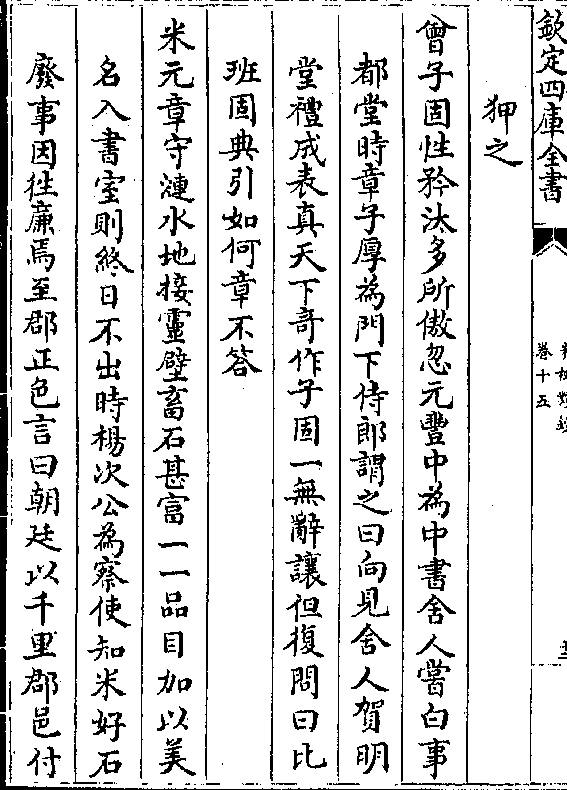 欽定四庫全書
卷十五
狎之
曾子固性矜汰多所傲忽元豐中為中書舍人嘗白事
都堂時章子厚為門下侍郎謂之曰向見舍人賀明
堂禮成表真天下奇作子固一無辭讓但復問曰比
班固典引如何章不答
米元章守漣水地接靈壁畜石甚富一一品目加以美
名入書室則終日不出時楊次公為察使知米好石
廢事因往廉焉至郡正色言曰朝廷以千里郡邑付